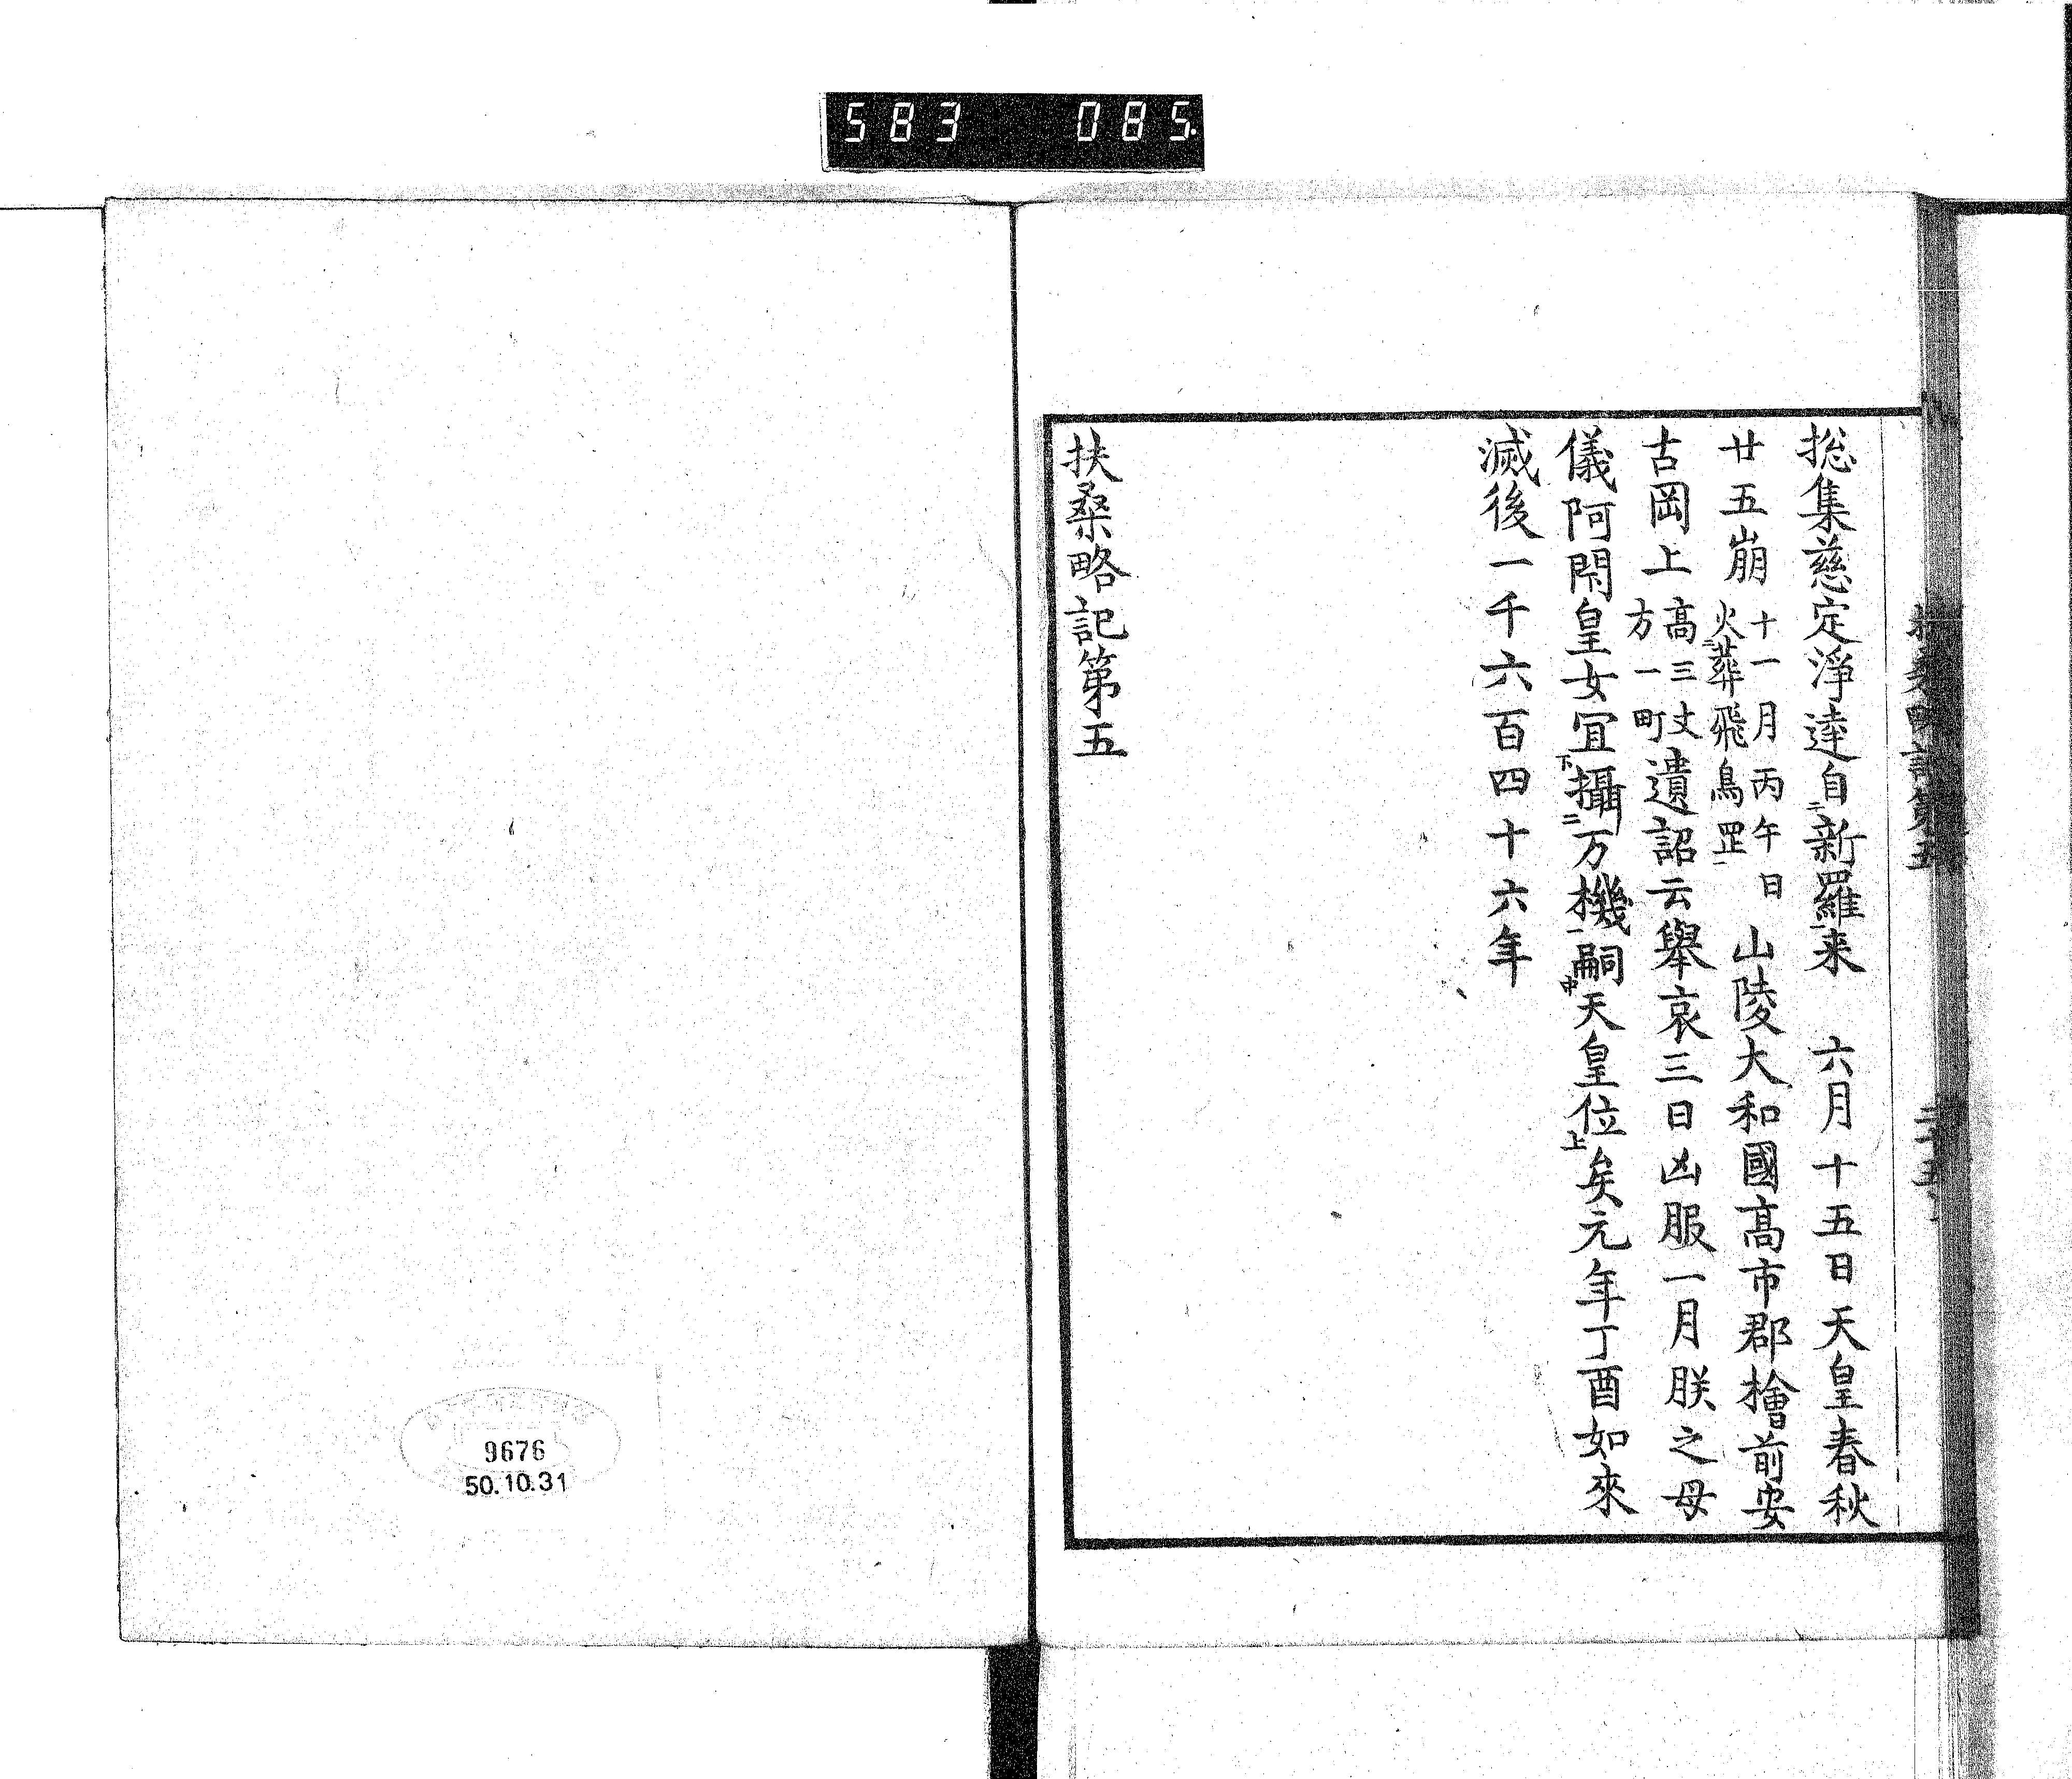 583 085.
扶桑略記第五 二十五
捴集慈定淨逹自二新羅一来 六月十五日天皇春秋
廿五崩 十一月丙午日 火二葬飛鳥罡一 山陵大和國髙市郡檜前安
古岡上 髙三丈 方一町 遺詔云舉哀三日凶服一月朕之母
儀阿閇皇女冝下攝二万機一嗣中天皇位上矣元年丁酉如來
滅後一千六百四十六年
扶桑略記第五
9676
50.10.31